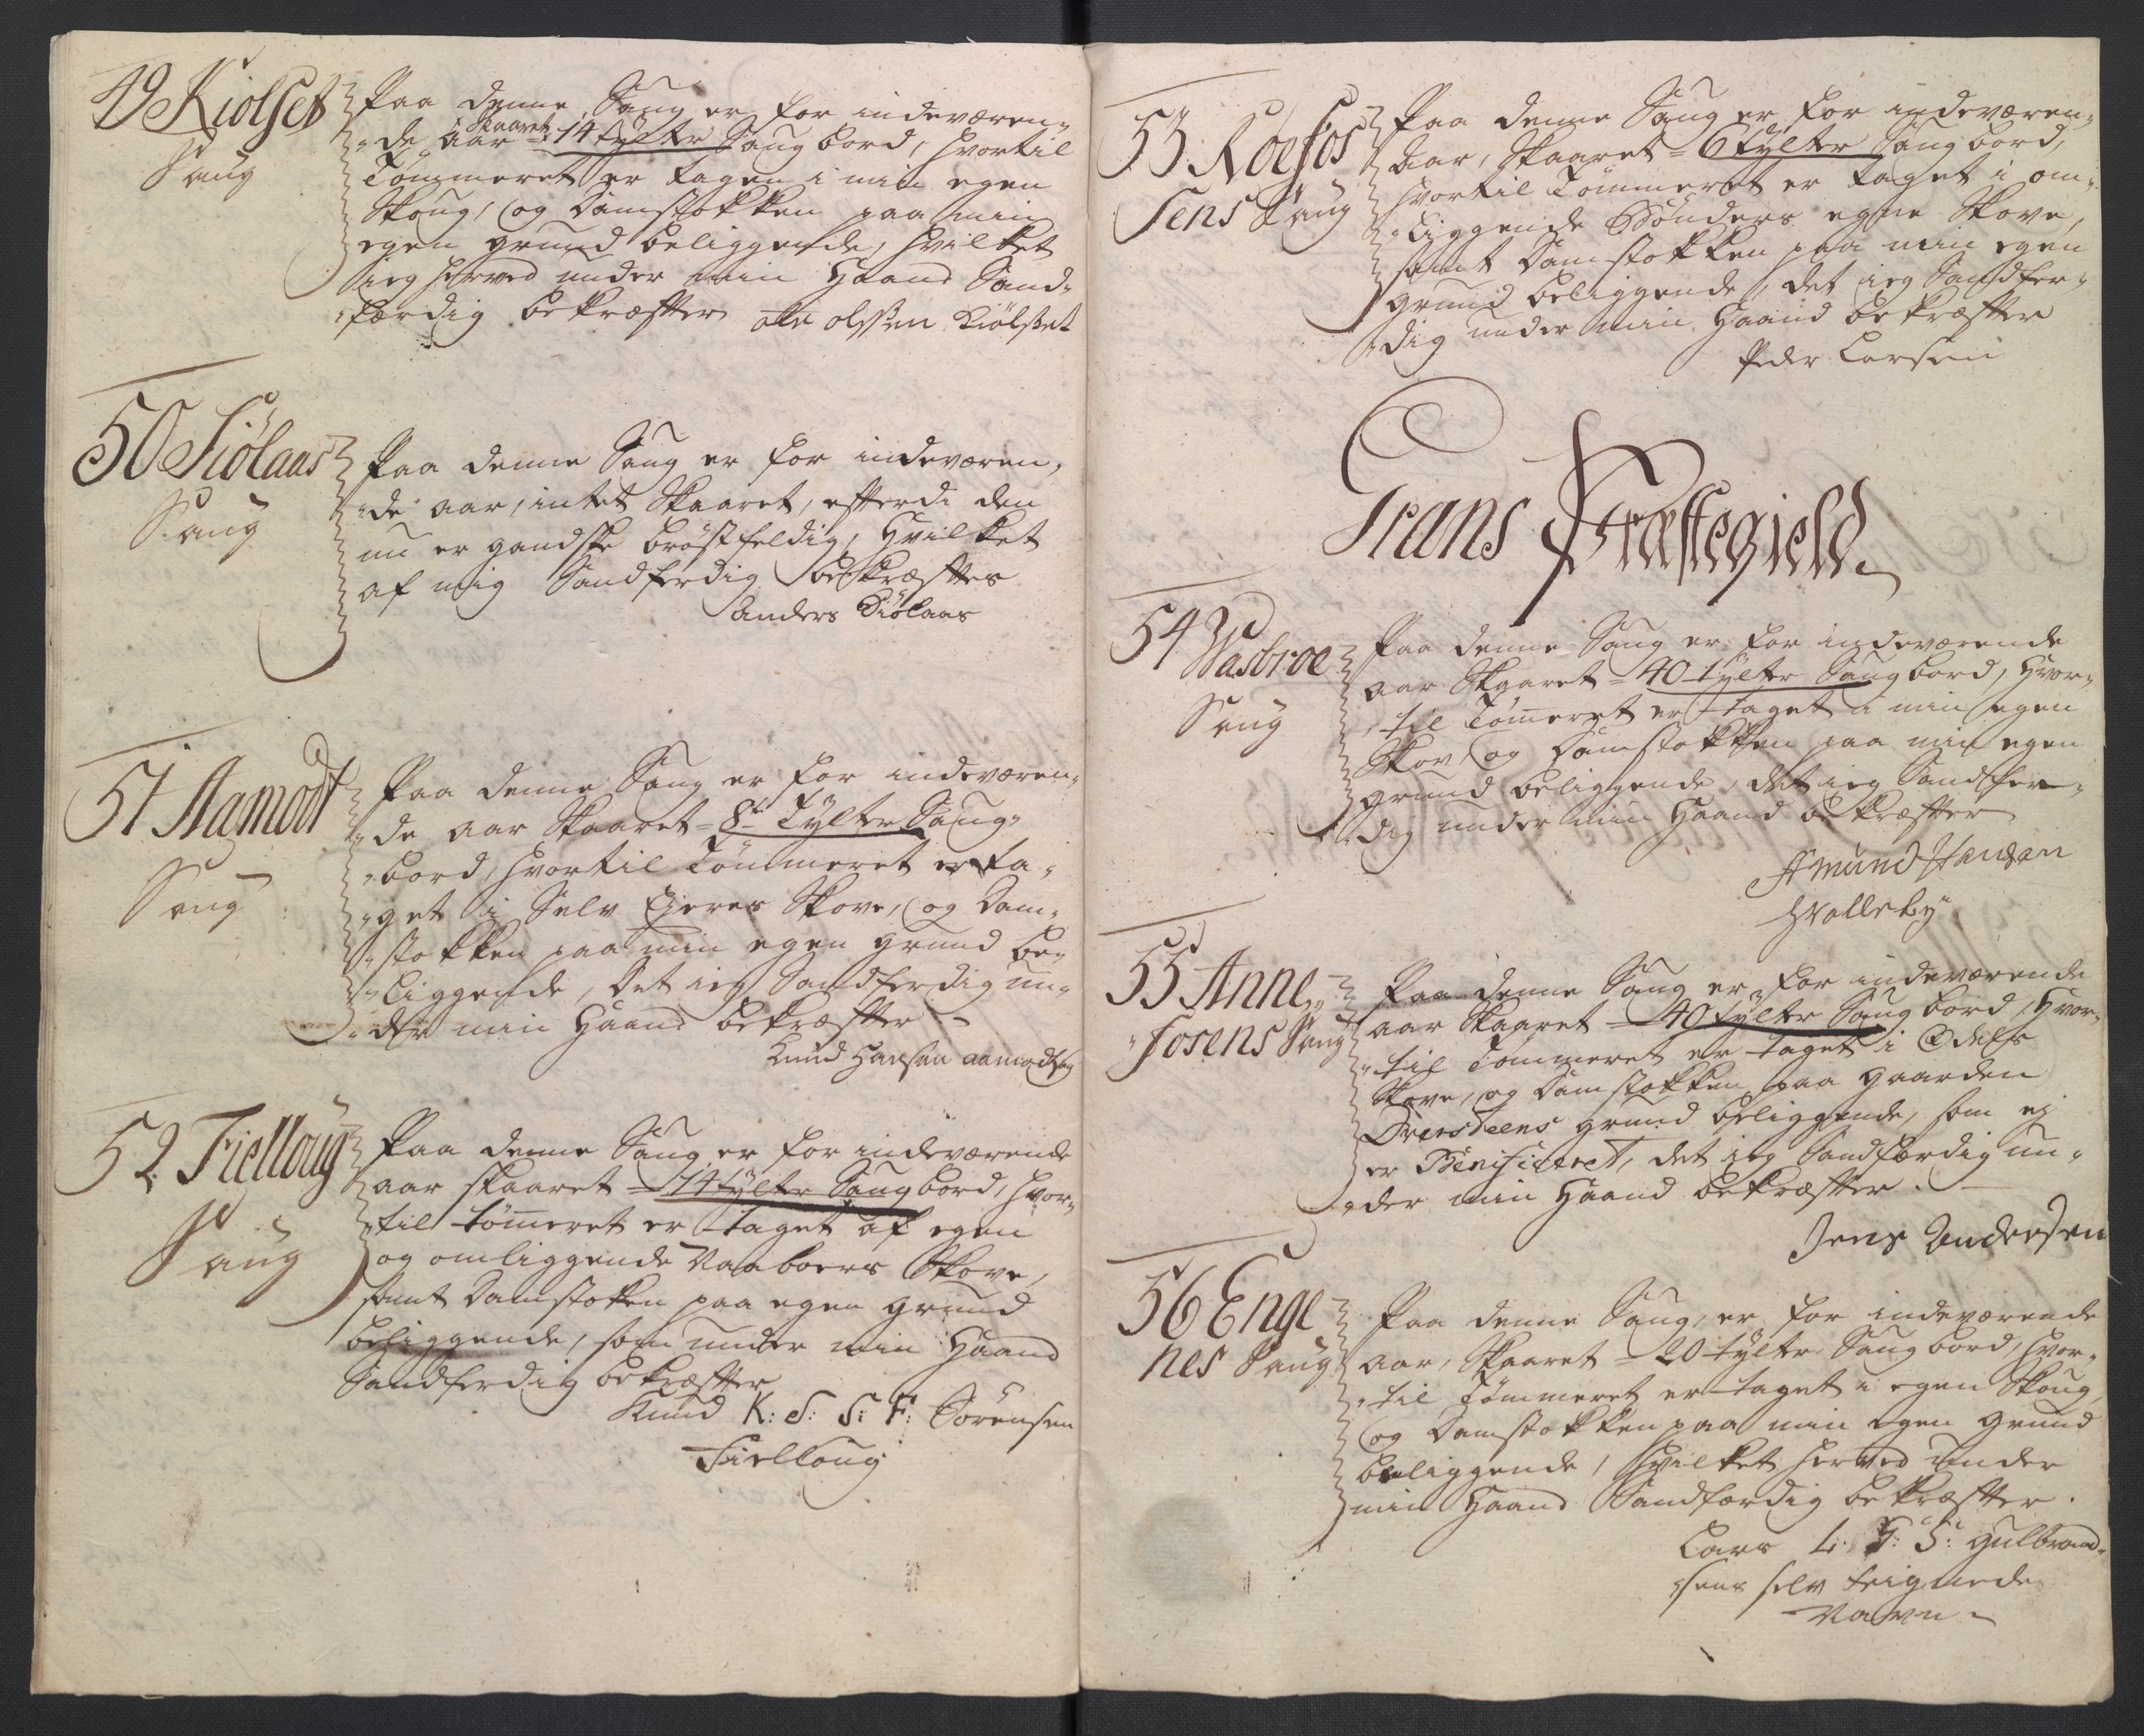 49 Kiolset
Saug
Paa denne Saug er for indeværen-
de aar skaaret 14 tylter Saugbord, hvortil
Tømmeret er tagen i min egen
Skoug, og Damstokken paa min
egen grund beliggende, hvilket
ieg herved under min Haand Sand-
færdig bekræfter Ole Olssen Kiölset
50 Siölaas
Saug
Paa denne Saug er for indeværen-
de aar, intet Skaaret, efterdi den
nu er gandske bröstfeldig, Hvilket
af mig Sandferdig bekræftes
Anders Siölaas
51 Aamodt
Saug
Paa denne Saug er for indeværen-
de aar Skaaret = 8te Tylter Saug-
bord, hvortil Tömmeret er ta-
get i Selv Ejeres Skove, og Dam-
stokken paa min egen grund be-
liggende, Det ieg Sandferdig un-
der min Haand bekræfter
Knud Hansen
52 Fielloug
Saug
Paa denne Saug er for indeværende
aar skaaret = 14 tylter Saugbord, hvor-
til tömeret er taget af egen
og omliggende Naaboers Skove,
samt Damstoken paa egen grund
beliggende, som under min Haand
Sandferdig bekræfter
Knud K: S: S: F: Sörensen
Fielloug
53 Roefos
sens Saug
Paa denne Saug er for indeværen-
Aar, Skaaret = 6 Tylter Saugbord,
hvortil Tömmeret er taget i om-
liggende Bönders egne Skove,
samt Damstokken paa min egen
grund beliggende, det ieg Sandfer-
dig under min Haand bekræfter
Peder Larsen
Trans Præstegield
54 Wasbroe
Saug
Paa denne Saug er for indeværende
aar Skaaret = 40 tylter Saugbord, hvor-
til Tömeret er taget i min egen
Skov, og Damstokken paa min egen
grund beliggende, det ieg Sandfer-
dig under min Haand bekræfter
Amund Hansen
Hvalleby
55 Anne-
fosens Saug
Paa denne Saug er for indeværende
aar Skaaret = 40 tylter Saugbord, hvor-
til Tommeret er taget i Odels
Skove, og Damstokken paa gaarden
grund beliggende, som ej
er Benificeret, det ieg Sandfærdig un-
der min Haand bekræfter.
Jens Andersen
56 Enge
nes Saug
Paa denne Saug, er for indeværende
aar, Skaaret = 20 tylter Saugbord, hvor-
til Tömmeret er taget i egen Skoug
og Damstokken paa min egen grund
beliggende, hvilket herved under
min Haand Sandfærdig bekræfter.
Lars L: G: S: Gulbrand-
sens selv teignede
Navn